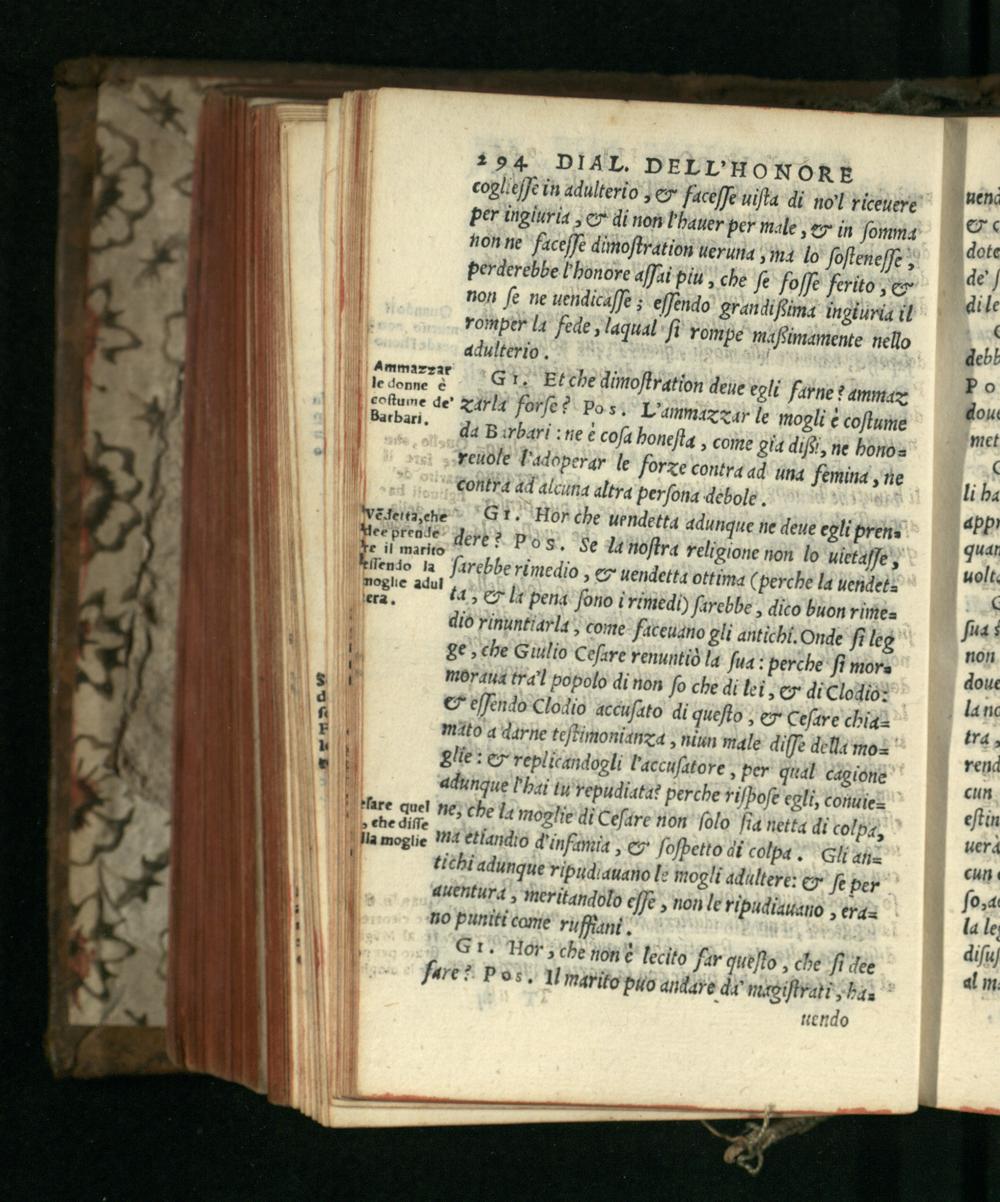 294 DIAL. DELL'HONORE
cogliesse in adulterio, & facesse uista di no'l riceuere
per ingiuria, & di non l'hauer per male, & in somma
non ne facesse dimostration ueruna, ma lo sostenesse,
perderebbe l'honore assai piu, che se fosse ferito, &
non se ne uendicasse; essendo grandißima ingiuria il
romper la fede, laqual si rompe maßimamente nello
adulterio.
Ammazzar
le donne è
costume de'
Barbari.
GI. Et che dimostration deue egli farne? ammaz
zarla forse? Pos. L'ammazzar le mogli è costume
da Barbari: ne è cosa honesta, come gia dißi, ne hono=
reuole l'adoperar le forze contra ad una femina, ne
contra ad alcuna altra persona debole.
Vẽdetta, che
dee prende
re il marito
essendo la
moglie adul
tera.
GI. Hor che uendetta adunque ne deue egli pren=
dere? Pos. Se la nostra religione non lo uietasse,
sarebbe rimedio, & uendetta ottima (perche la uendet=
ta, & la pena sono i rimedi) sarebbe, dico buon rime=
dio rinuntiarla, come faceuano gli antichi. Onde si leg
ge, che Giulio Cesare renuntiò la sua: perche si mor=
moraua tra'l popolo di non so che di lei, & di Clodio:
& essendo Clodio accusato di questo, & Cesare chia=
mato a darne testimonianza, niun male disse della mo=
glie: & replicandogli l'accusatore, per qual cagione
adunque l'hai tu repudiata? perche rispose egli, conuie=
ne, che la moglie di Cesare non solo sia netta di colpa,
ma etiandio d'infamia, & sospetto di colpa. Gli an=
tichi adunque ripudiauano le mogli adultere: & se per
auentura, meritandolo esse, non le ripudiauano, era=
no puniti come ruffiani.
esare quel
, che disse
lla moglie
GI. Hor, che non è lecito far questo, che si dee
fare? Pos. Il marito puo andare da' magistrati, ha=
uendo
uend
& c
dote
de' s
di le
debb
Po
doue
met
li ha
appr
quan
uolt
sua s
non
doue
la no
tra,
rend
cun
estin
uerà
cun
so, a
la leg
disus
al m